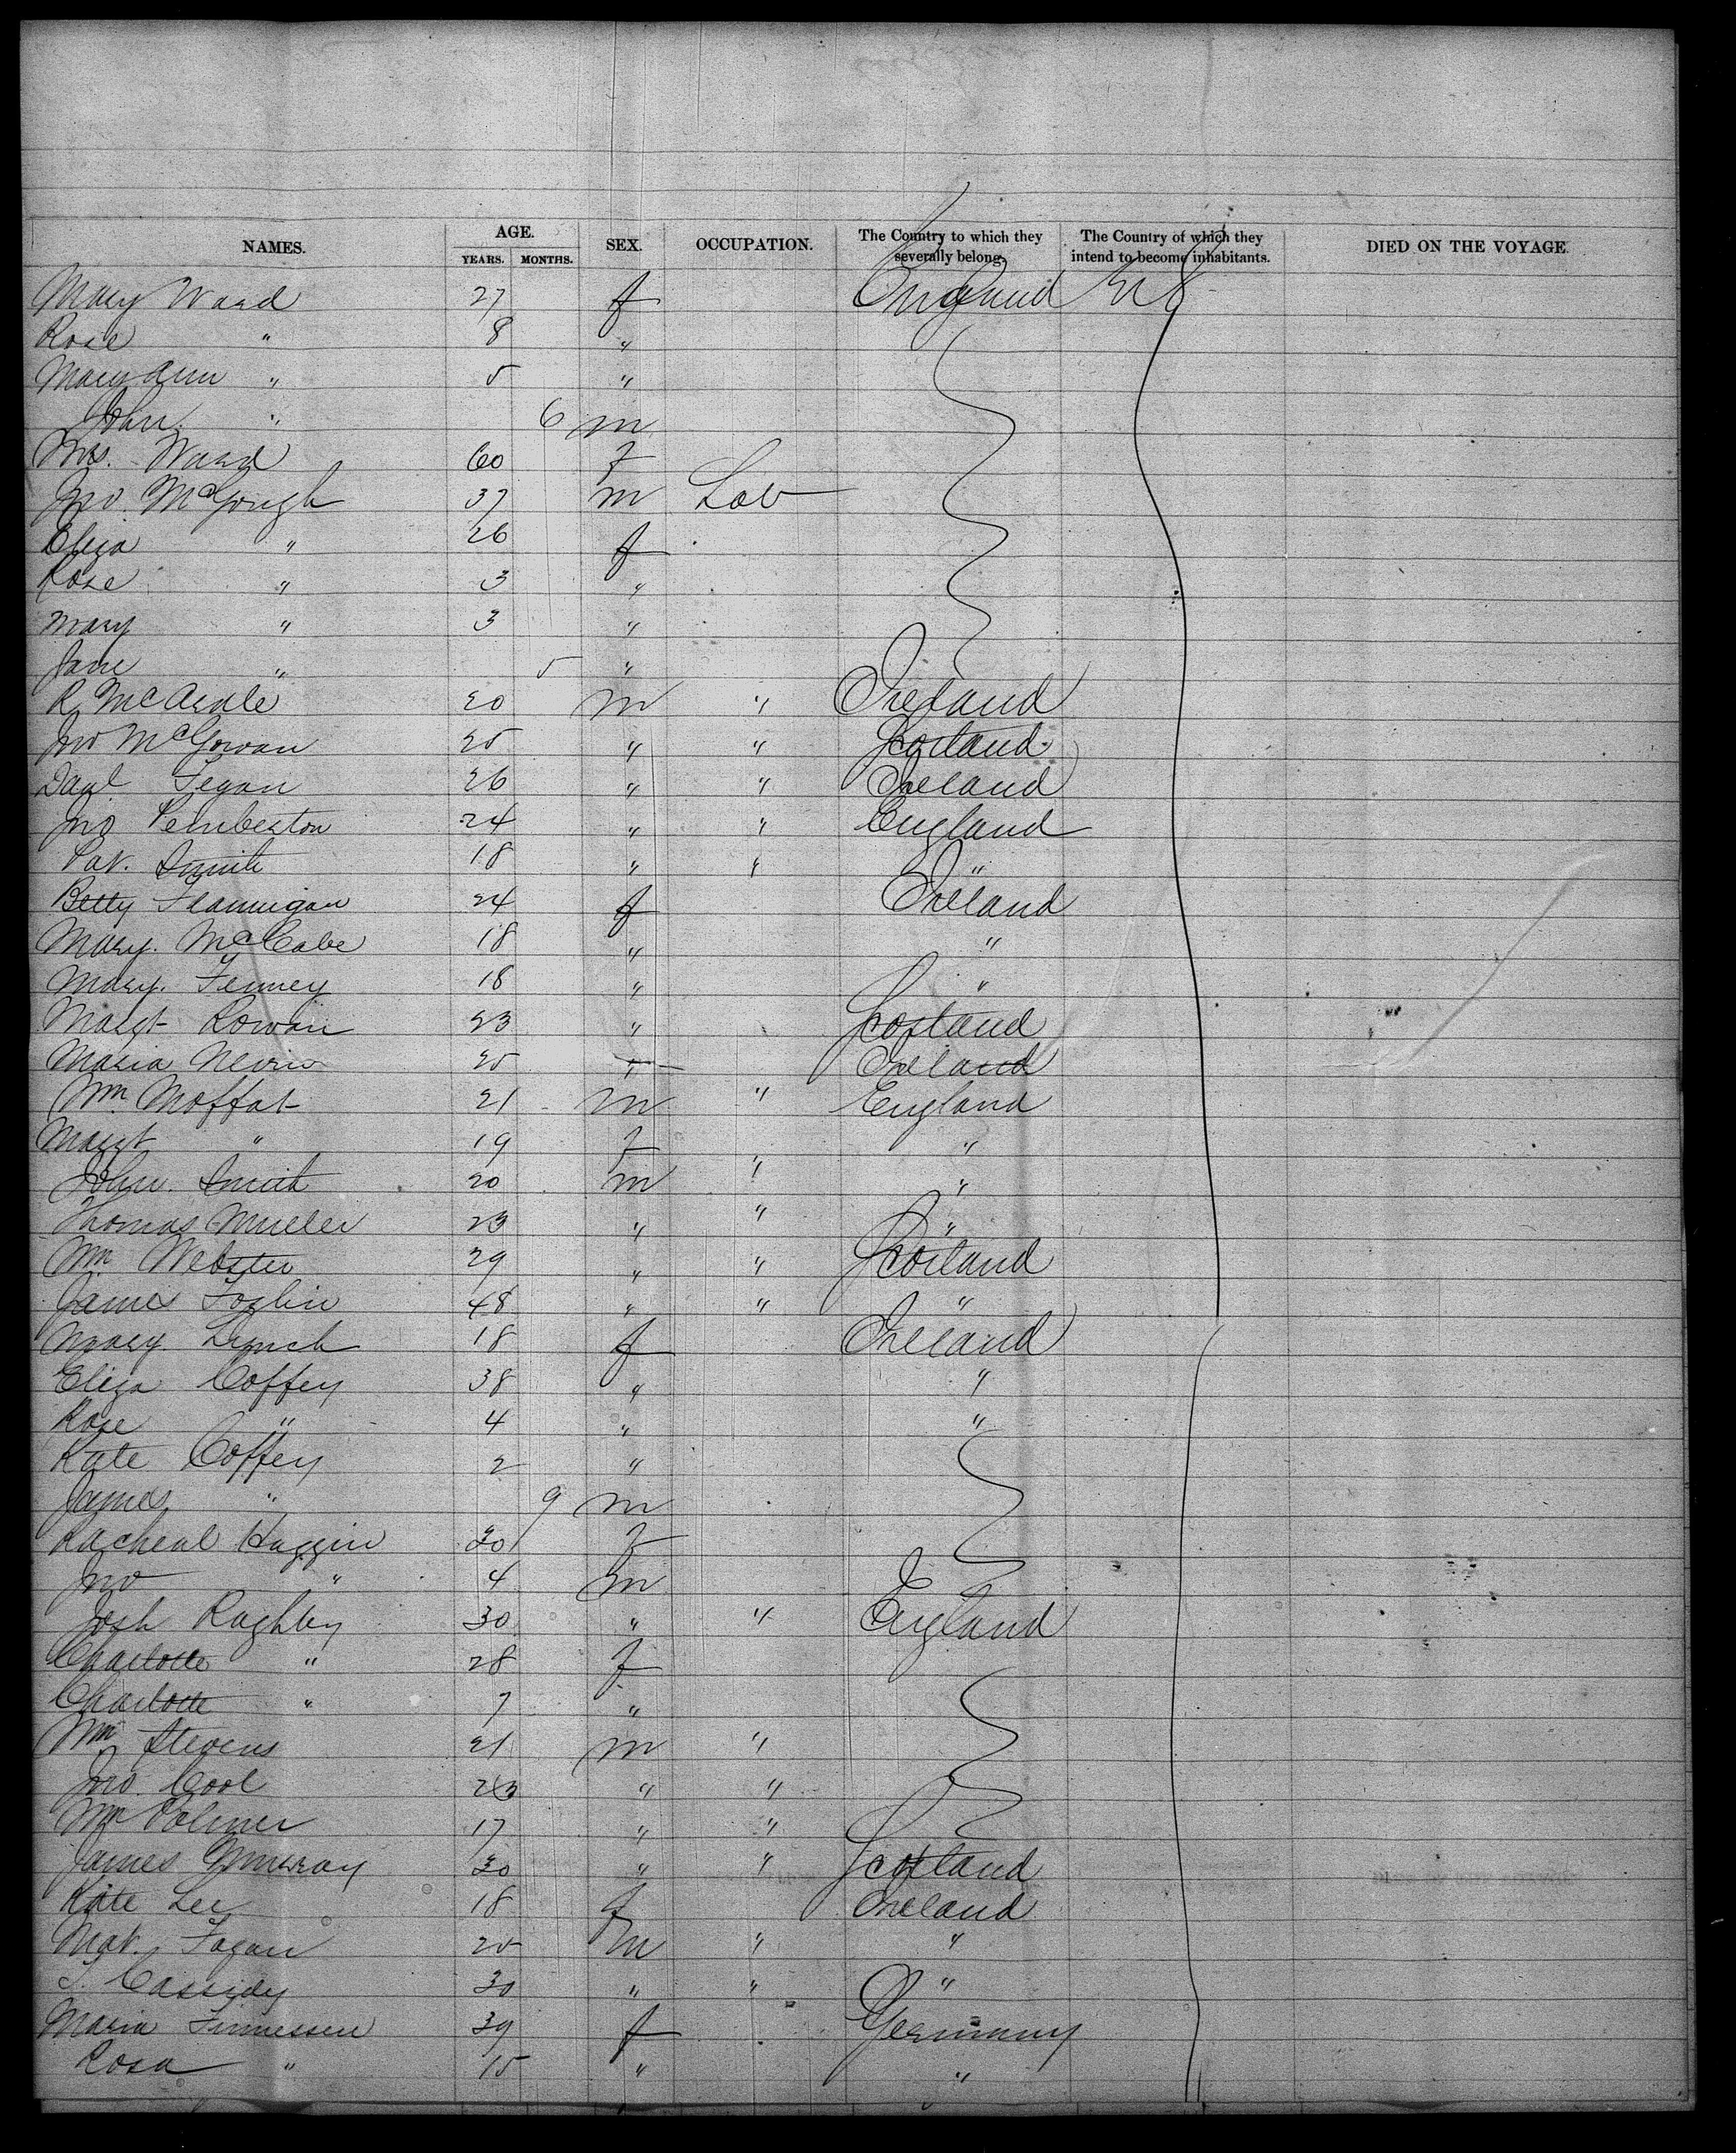 NAMES. AGE. YEARS. MONTHS. SEX. OCCUPATION. The Country to which they severally belong. The Country of which they intend to become inhabitants. DIED ON THE VOYAGE.
Mary Ward 27 f England U S
Rose " 8 "
Mary Ann " 5 "
John " 6 m
Mrs. Ward 60 f
Jno McGough 37 m Lab
Eliza " 26 f
Rose " 3 "
Mary " 3 "
Jane " 5 "
R McArdle 20 m " Ireland
Jno McGowan 25 " " Scotland
Danl Fegan 26 " " Ireland
Jno Pemberton 24 " " England
Pat. Smith 18 " " "
Betty Flannigan 24 f Ireland
Mary. McCabe 18 " "
Mary. Fenney 18 " "
Margt Rowan 23 " Scotland
Maria 25 " Ireland
Wm Moffat 21 m " England
Margt " 19 f "
John Smith 20 m " "
Thomas Muller 23 " " "
Wm Webster 29 " " Scotland
James 48 " " "
Mary Lynch 18 f Ireland
Eliza Coffey 38 " "
Rose " 4 " "
Kate Coffey 2 "
James " 9 m
Racheal Huggin 30 f
Jno " 4 m
Josh Raghby 30 " " England
Charlotte " 28 f
Charlotte " 7 "
Wm Stevens 21 m "
Jno Cool 23 " "
Wm Palmer 17 " "
James Murray 30 " " Scotland
Kate Lee 18 f Ireland
Mat. Fagan 25 m " "
T. Cassidy 30 " " "
Maria Finnessen 39 f Germany
Rosa " 15 " "